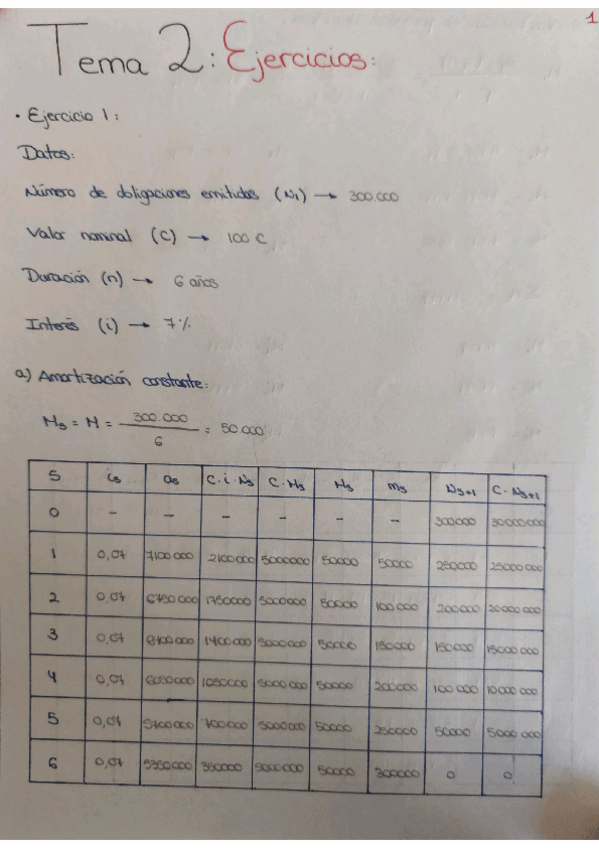 1
Tema 2: Ejercicios:
· Ejercicio 1:
Datos:
Número de obligaciones emitidas (N1) → 300.000
Valor nominal (C) → 100 €
Duración (n) → 6 años
Interés (i) → 7%
a) Amortización constante:
Ms = M = 300.000 / 6 = 50.000
S is as C·i·Ns C·Ms Ms ms Ns+1 C·Ns+1
0 - - - - - - 300000 30000000
1 0,07 7100000 2100000 5000000 50000 50000 250000 25000000
2 0,07 6750000 1750000 5000000 50000 100000 200000 20000000
3 0,07 6400000 1400000 5000000 50000 150000 150000 15000000
4 0,07 6050000 1050000 5000000 50000 200000 100000 10000000
5 0,07 5700000 700000 5000000 50000 250000 50000 5000000
6 0,07 5350000 350000 5000000 50000 300000 0 0